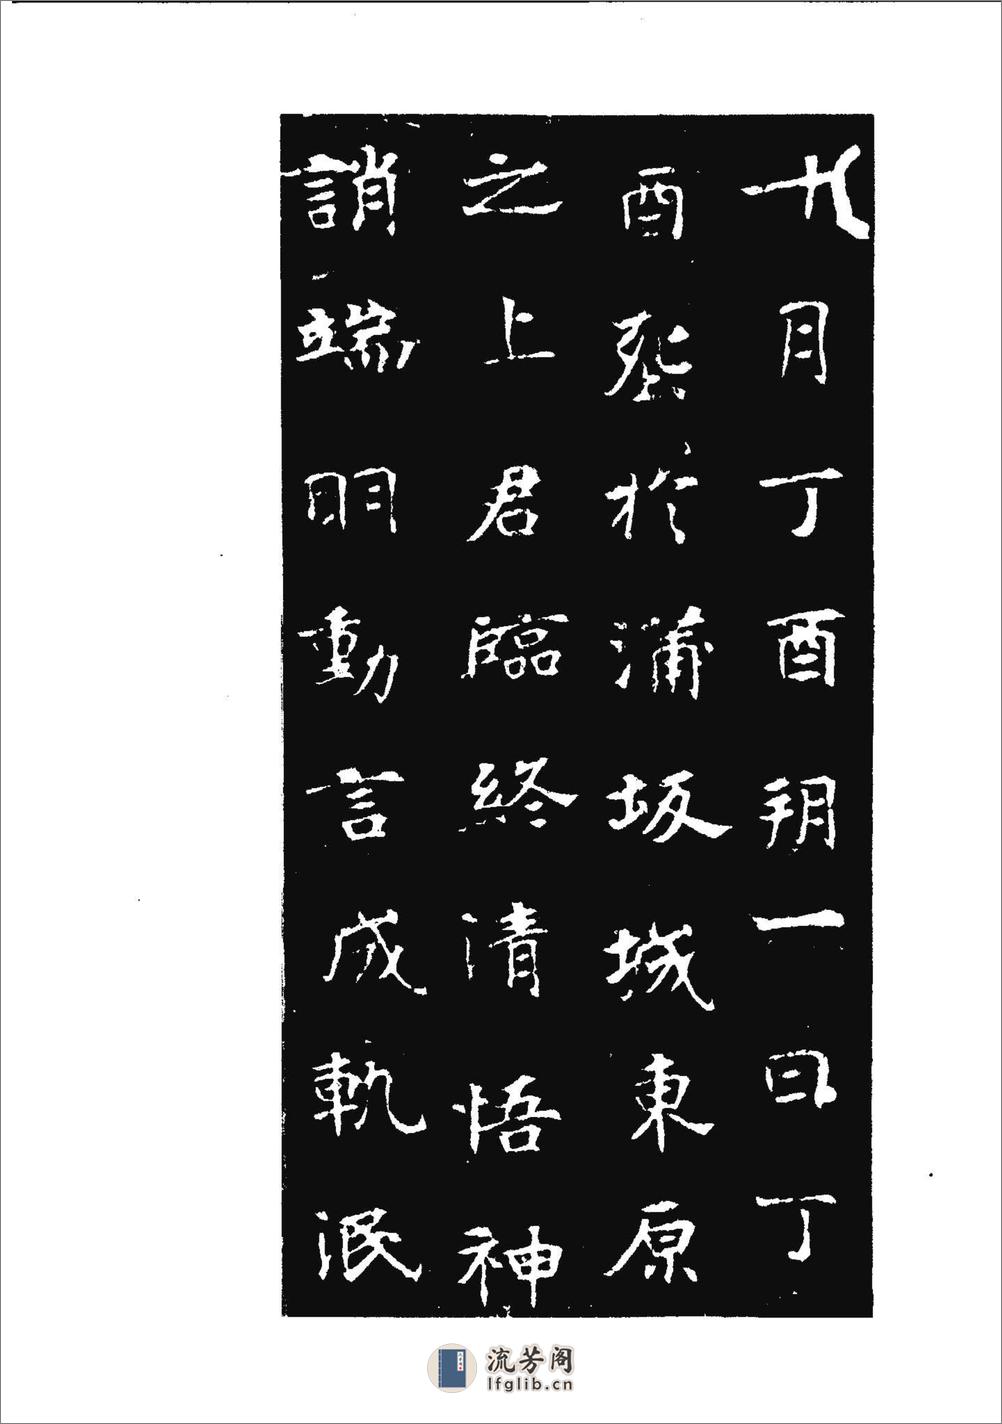 十月丁酉朔一日丁
酉葬於蒲坂城東原
之上君臨終清悟神
誚端明動言成軌泯
流芳阁
lfglib.cn